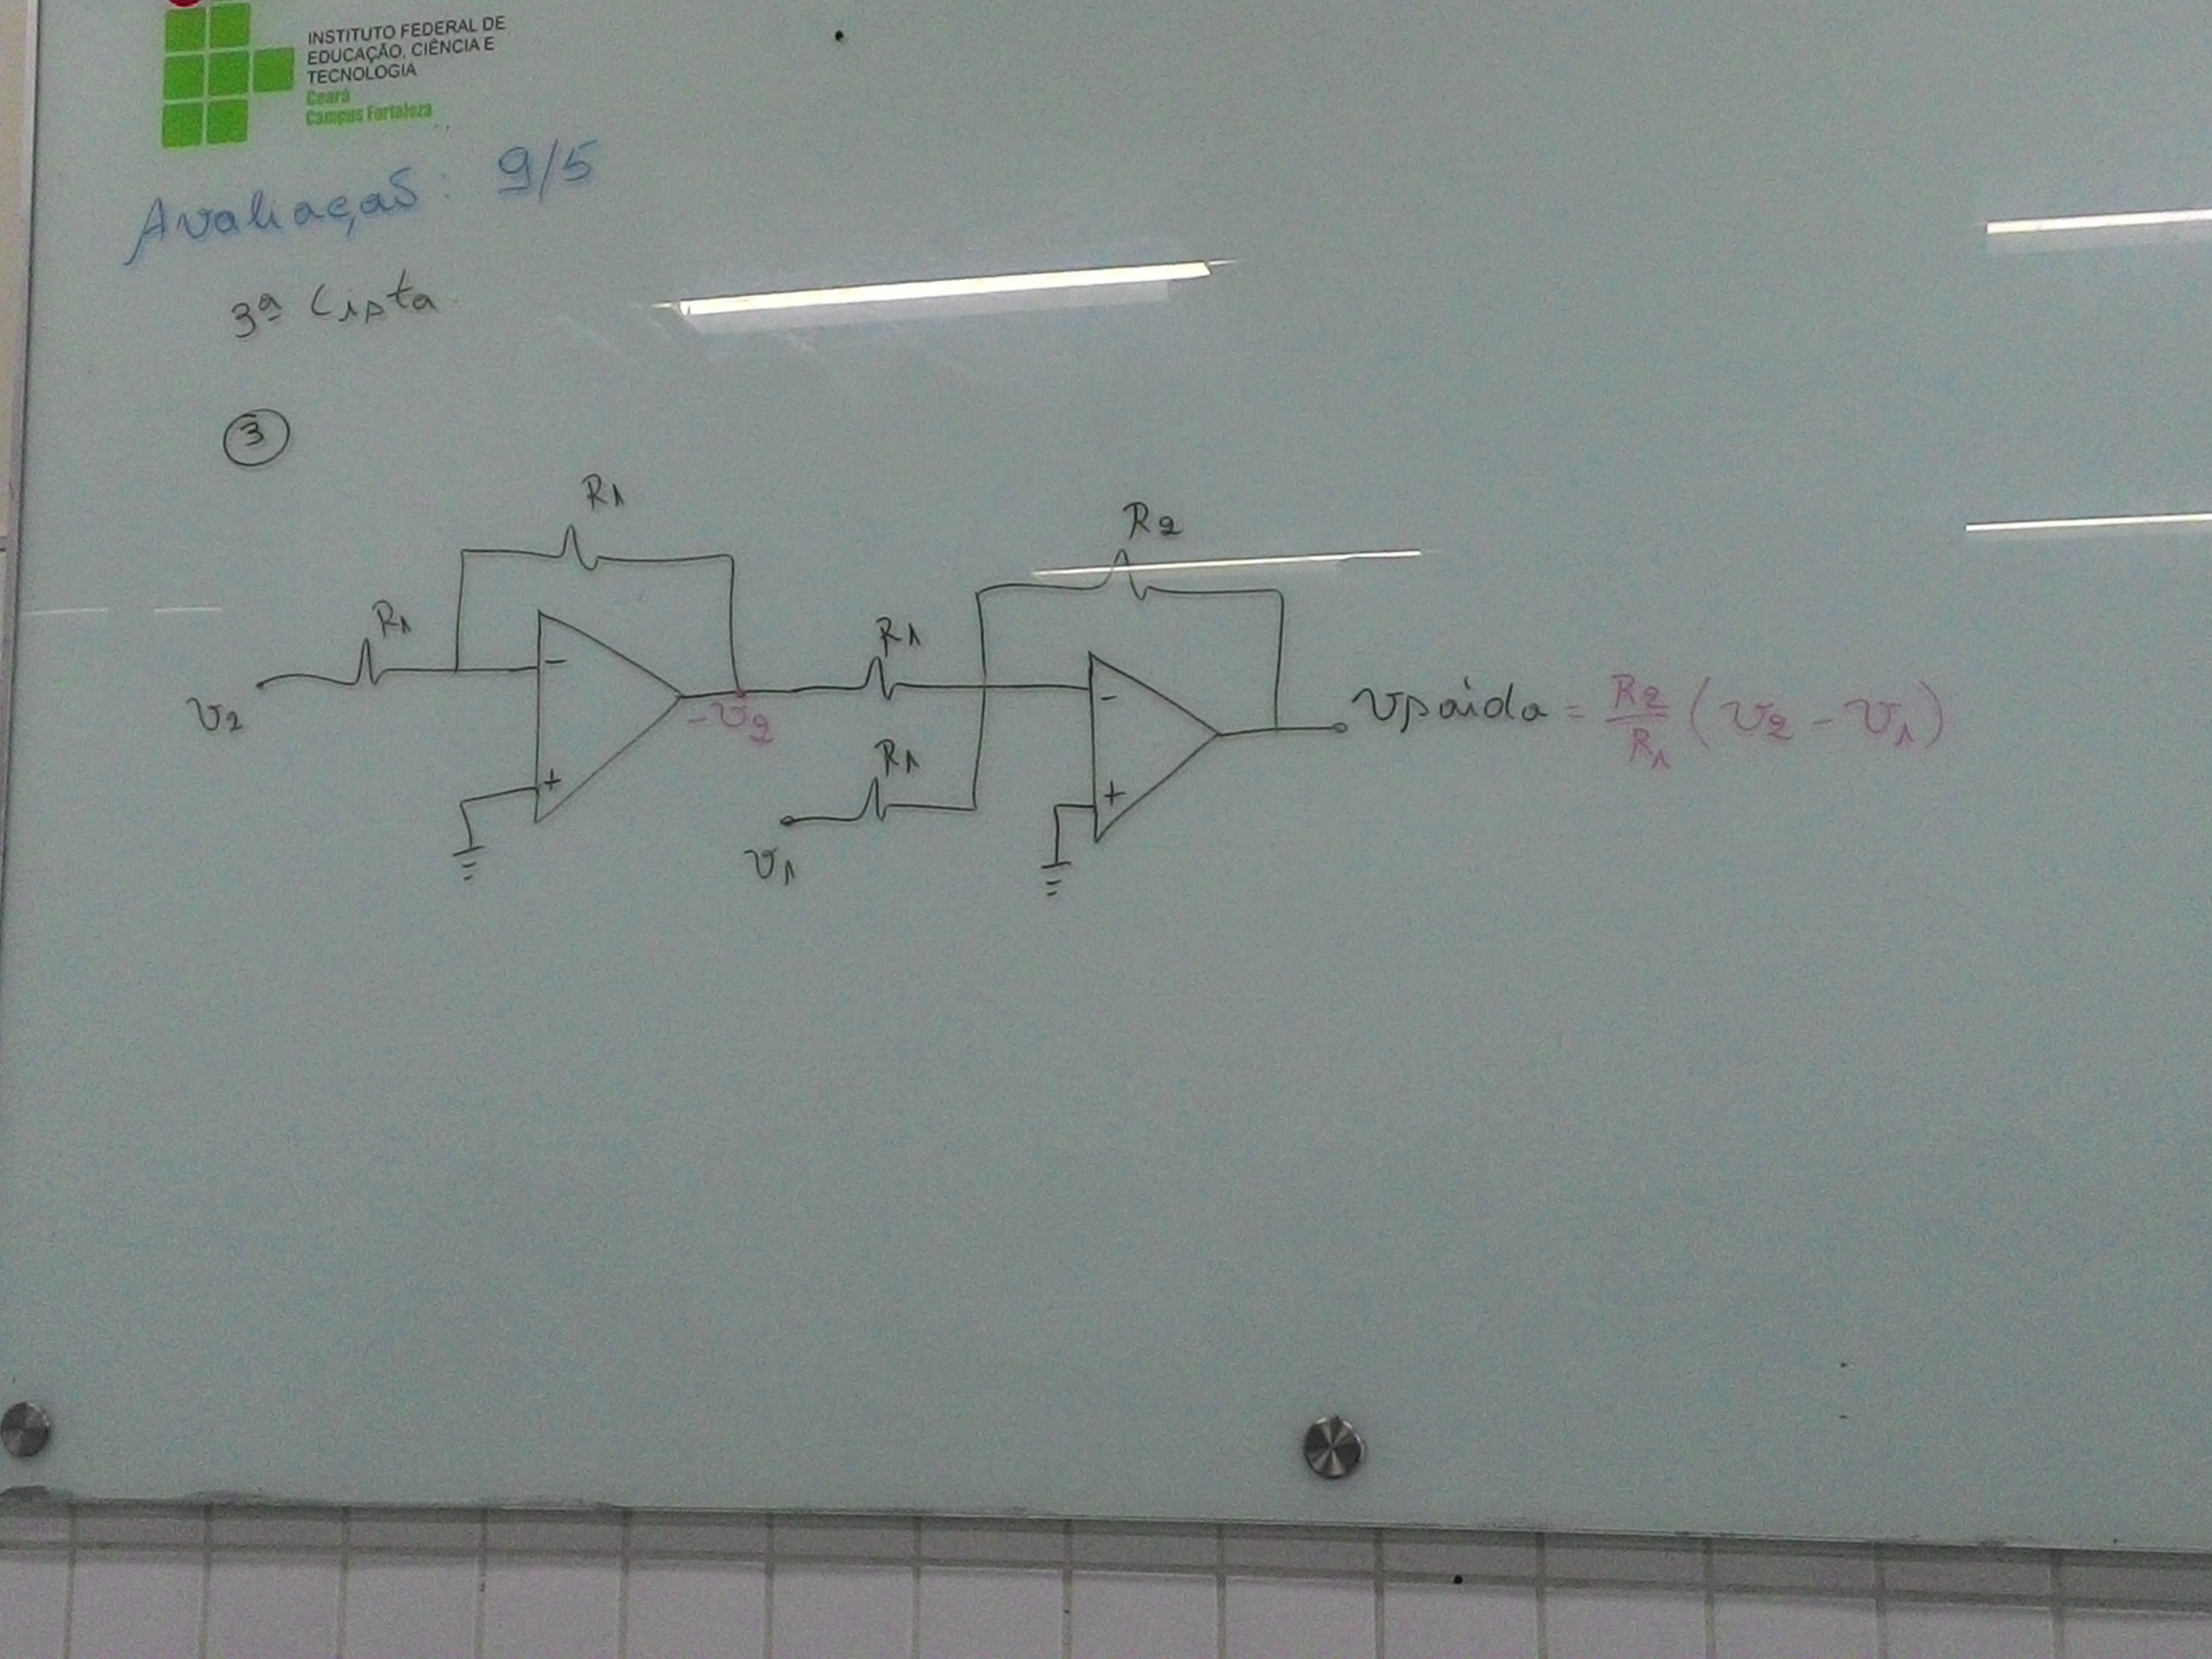 INSTITUTO FEDERAL DE
EDUCAÇÃO, CIÊNCIA E
TECNOLOGIA
Ceará
Campus Fortaleza
Avaliação: 9/5
3ª Lista
3
R1
R2
R1
R1
-
-
v2
-v2
vsaída = R2/R1 (v2 - v1)
R1
+
+
v1